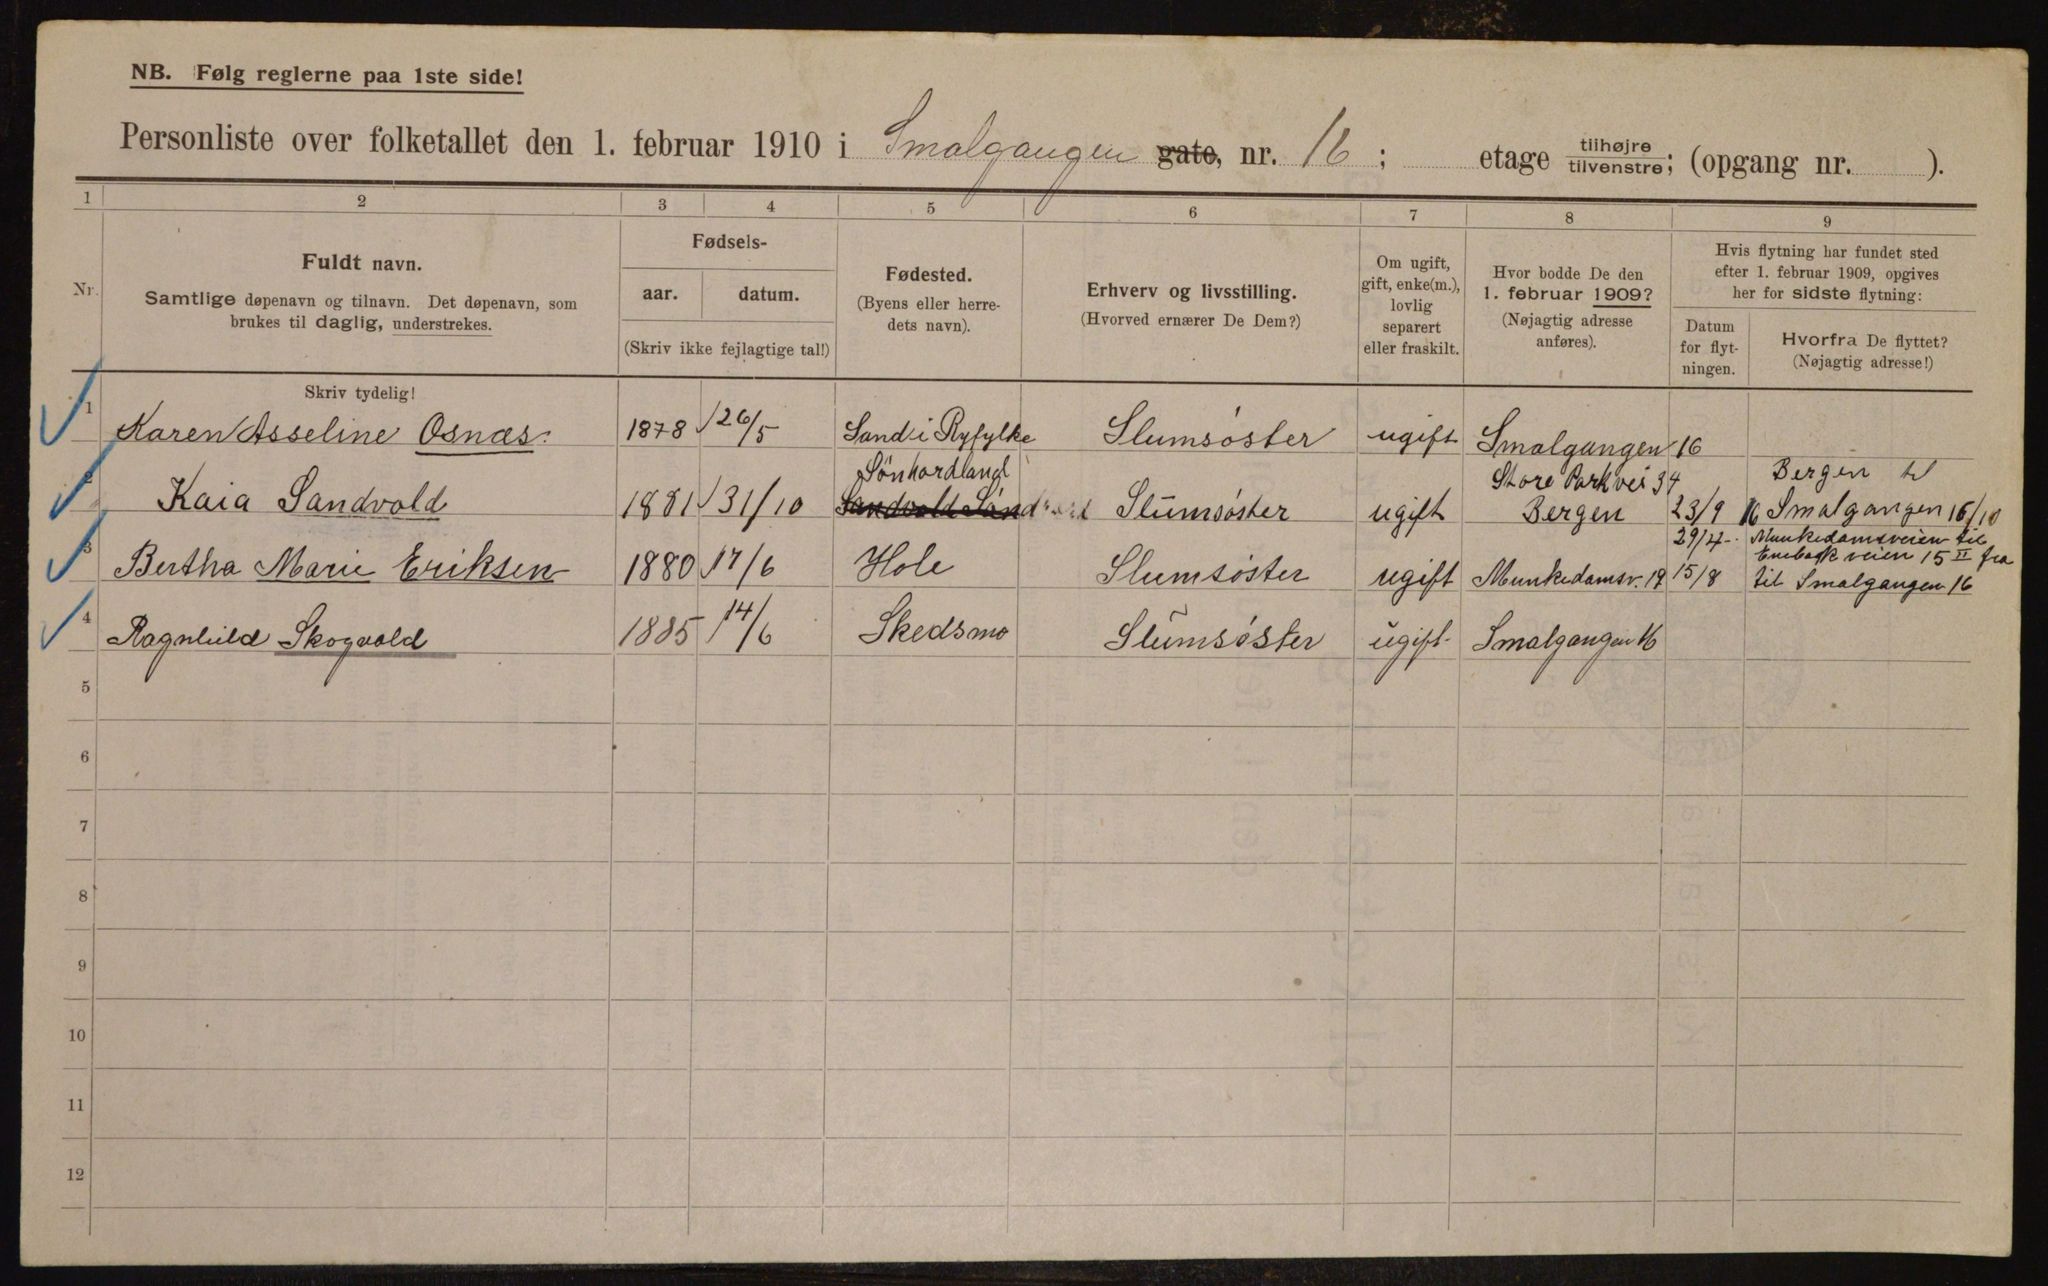 NB. Følg reglerne paa 1ste side!
Personliste over folketallet den 1. februar 1910 i Smalgangen gate, nr. 16 ; etage tilhøjre/tilvenstre; (opgang nr. ).
1 2 3 4 5 6 7 8 9
Nr.
Fuldt navn.
Samtlige døpenavn og tilnavn. Det døpenavn, som
brukes til daglig, understrekes.
Fødsels-
aar. datum.
(Skriv ikke fejlagtige tal!)
Fødested.
(Byens eller herre-
dets navn).
Erhverv og livsstilling.
(Hvorved ernærer De Dem?)
Om ugift,
gift, enke(m.),
lovlig
separert
eller fraskilt.
Hvor bodde De den
1. februar 1909?
(Nøjagtig adresse
anføres).
Hvis flytning har fundet sted
efter 1. februar 1909, opgives
her for sidste flytning:
Datum
for flyt-
ningen.
Hvorfra De flyttet?
(Nøjagtig adresse!)
Skriv tydelig!
1 Karen Asseline Osnæs. 1878 26/5 Sand i Ryfylke Slumsøster ugift Smalgangen 16
Sönhordland Store Parkvei 34 Bergen til
2 Kaia Sandvold 1881 31/10 Sandvold Söndhord Slumsøster ugift Bergen 23/9 16 Smalgangen 16/10
29/4 Munkedamsveien til
veien 15 II fra
3 Bertha Marie Eriksen 1880 17/6 Hole Slumsøster ugift Munkedamsv. 19 15/8 til Smalgangen 16
4 Ragnhild Skogvold 1885 14/6 Skedsmo Slumsøster ugift Smalgangen 16
5
6
7
8
9
10
11
12